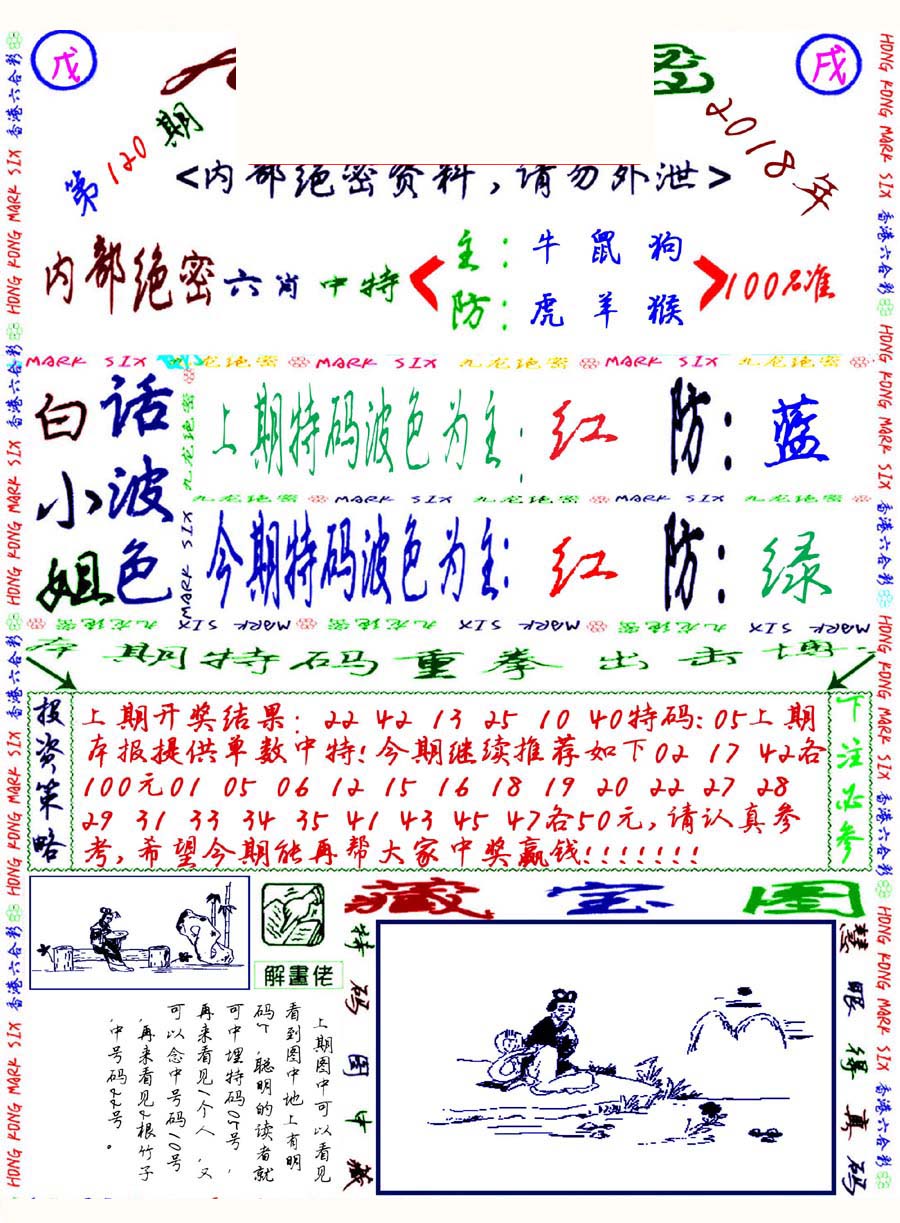 戊
戌
第120期
2018年
<内部绝密资料，请勿外泄>
内部绝密六肖中特
主：牛 鼠 狗
防：虎 羊 猴
100%准
MARK SIX 九龙绝密 MARK SIX 九龙绝密 MARK SIX 九龙绝密
白小姐
话波色
上期特码波色为主：红 防：蓝
九龙绝密 MARK SIX 九龙绝密 MARK SIX 九龙绝密
今期特码波色为主：红 防：绿
本期特码重拳出击博
投资策略
上期开奖结果：22 42 13 25 10 40特码：05上期
本报提供单数中特！今期继续推荐如下02 17 42各
100元01 05 06 12 15 16 18 19 20 22 27 28
29 31 33 34 35 41 43 45 47各50元，请认真参
考，希望今期能再帮大家中奖赢钱！！！！！！！
下注必参
藏宝图
解畫佬
上期图中可以看见
看到图中地上有明
码7 聪明的读者就
可中埋特码07号，
再来看见1个人，又
可以念中号码10号
，再来看见2根竹子
，中号码22号。
特码图中藏
慧眼得真码
HONG KONG MARK SIX 香港六合彩
HONG KONG MARK SIX 香港六合彩